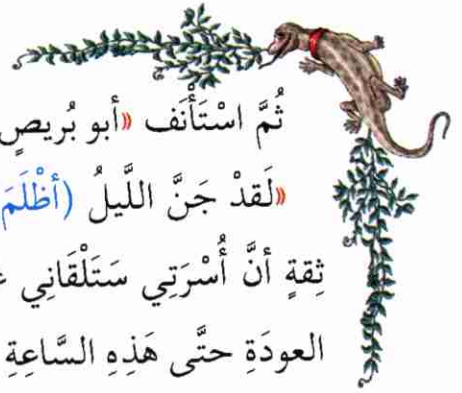 ثُمَّ اسْتَأْنَف «أبو بُريصٍ
«لَقدْ جَنَّ اللَّيلُ (أظْلَمَ
ثِقةٍ أنَّ أُسْرَتِي سَتَلْقَانِي
العودَةِ حتَّى هَذِهِ السَّاعةِ